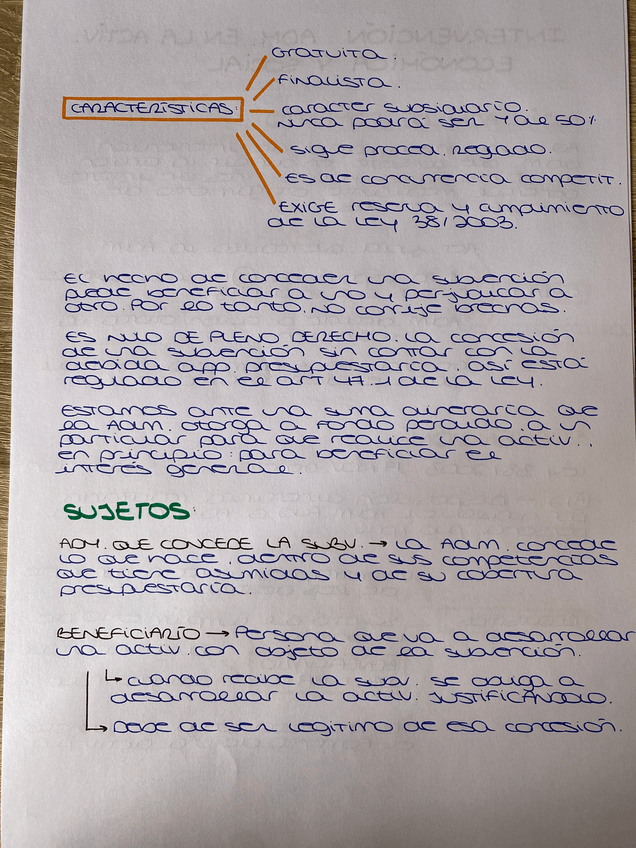 GRATUITA.
FINALISTA.
CARACTERÍSTICAS:
caracter subsidiario.
nunca podrá ser > de 50%
sigue proced. reglado.
Es de concurrencia competit.
EXIGE reserva y cumplimiento
de la Ley 38/2003.
El hecho de conceder una subvención
puede beneficiar a uno y perjudicar a
otro por lo tanto, no corrije brechas.
ES NULO DE PLENO DERECHO. La concesión
de una subvención sin contar con la
debida app. presupuestaria. así está
regulado en el art 47.1 de la Ley.
Estamos ante una suma dineraria que
la Adm. otorga a fondo perdido, a un
particular para que realice una activ.,
en principio: para beneficiar el
interés general.
SUJETOS:
ADM. QUE CONCEDE LA SUBV. → La Adm. concede
lo que hace, dentro de sus competencias
que tiene asumidas y de su cobertura
presupuestaria.
BENEFICIARIO → Persona que va a desarrollar
una activ. con objeto de la subvención.
↳ cuando recibe la subv. se obliga a
desarrollar la activ. JUSTIFICÁNDOLO.
↳ Debe de ser legítimo de esa concesión.